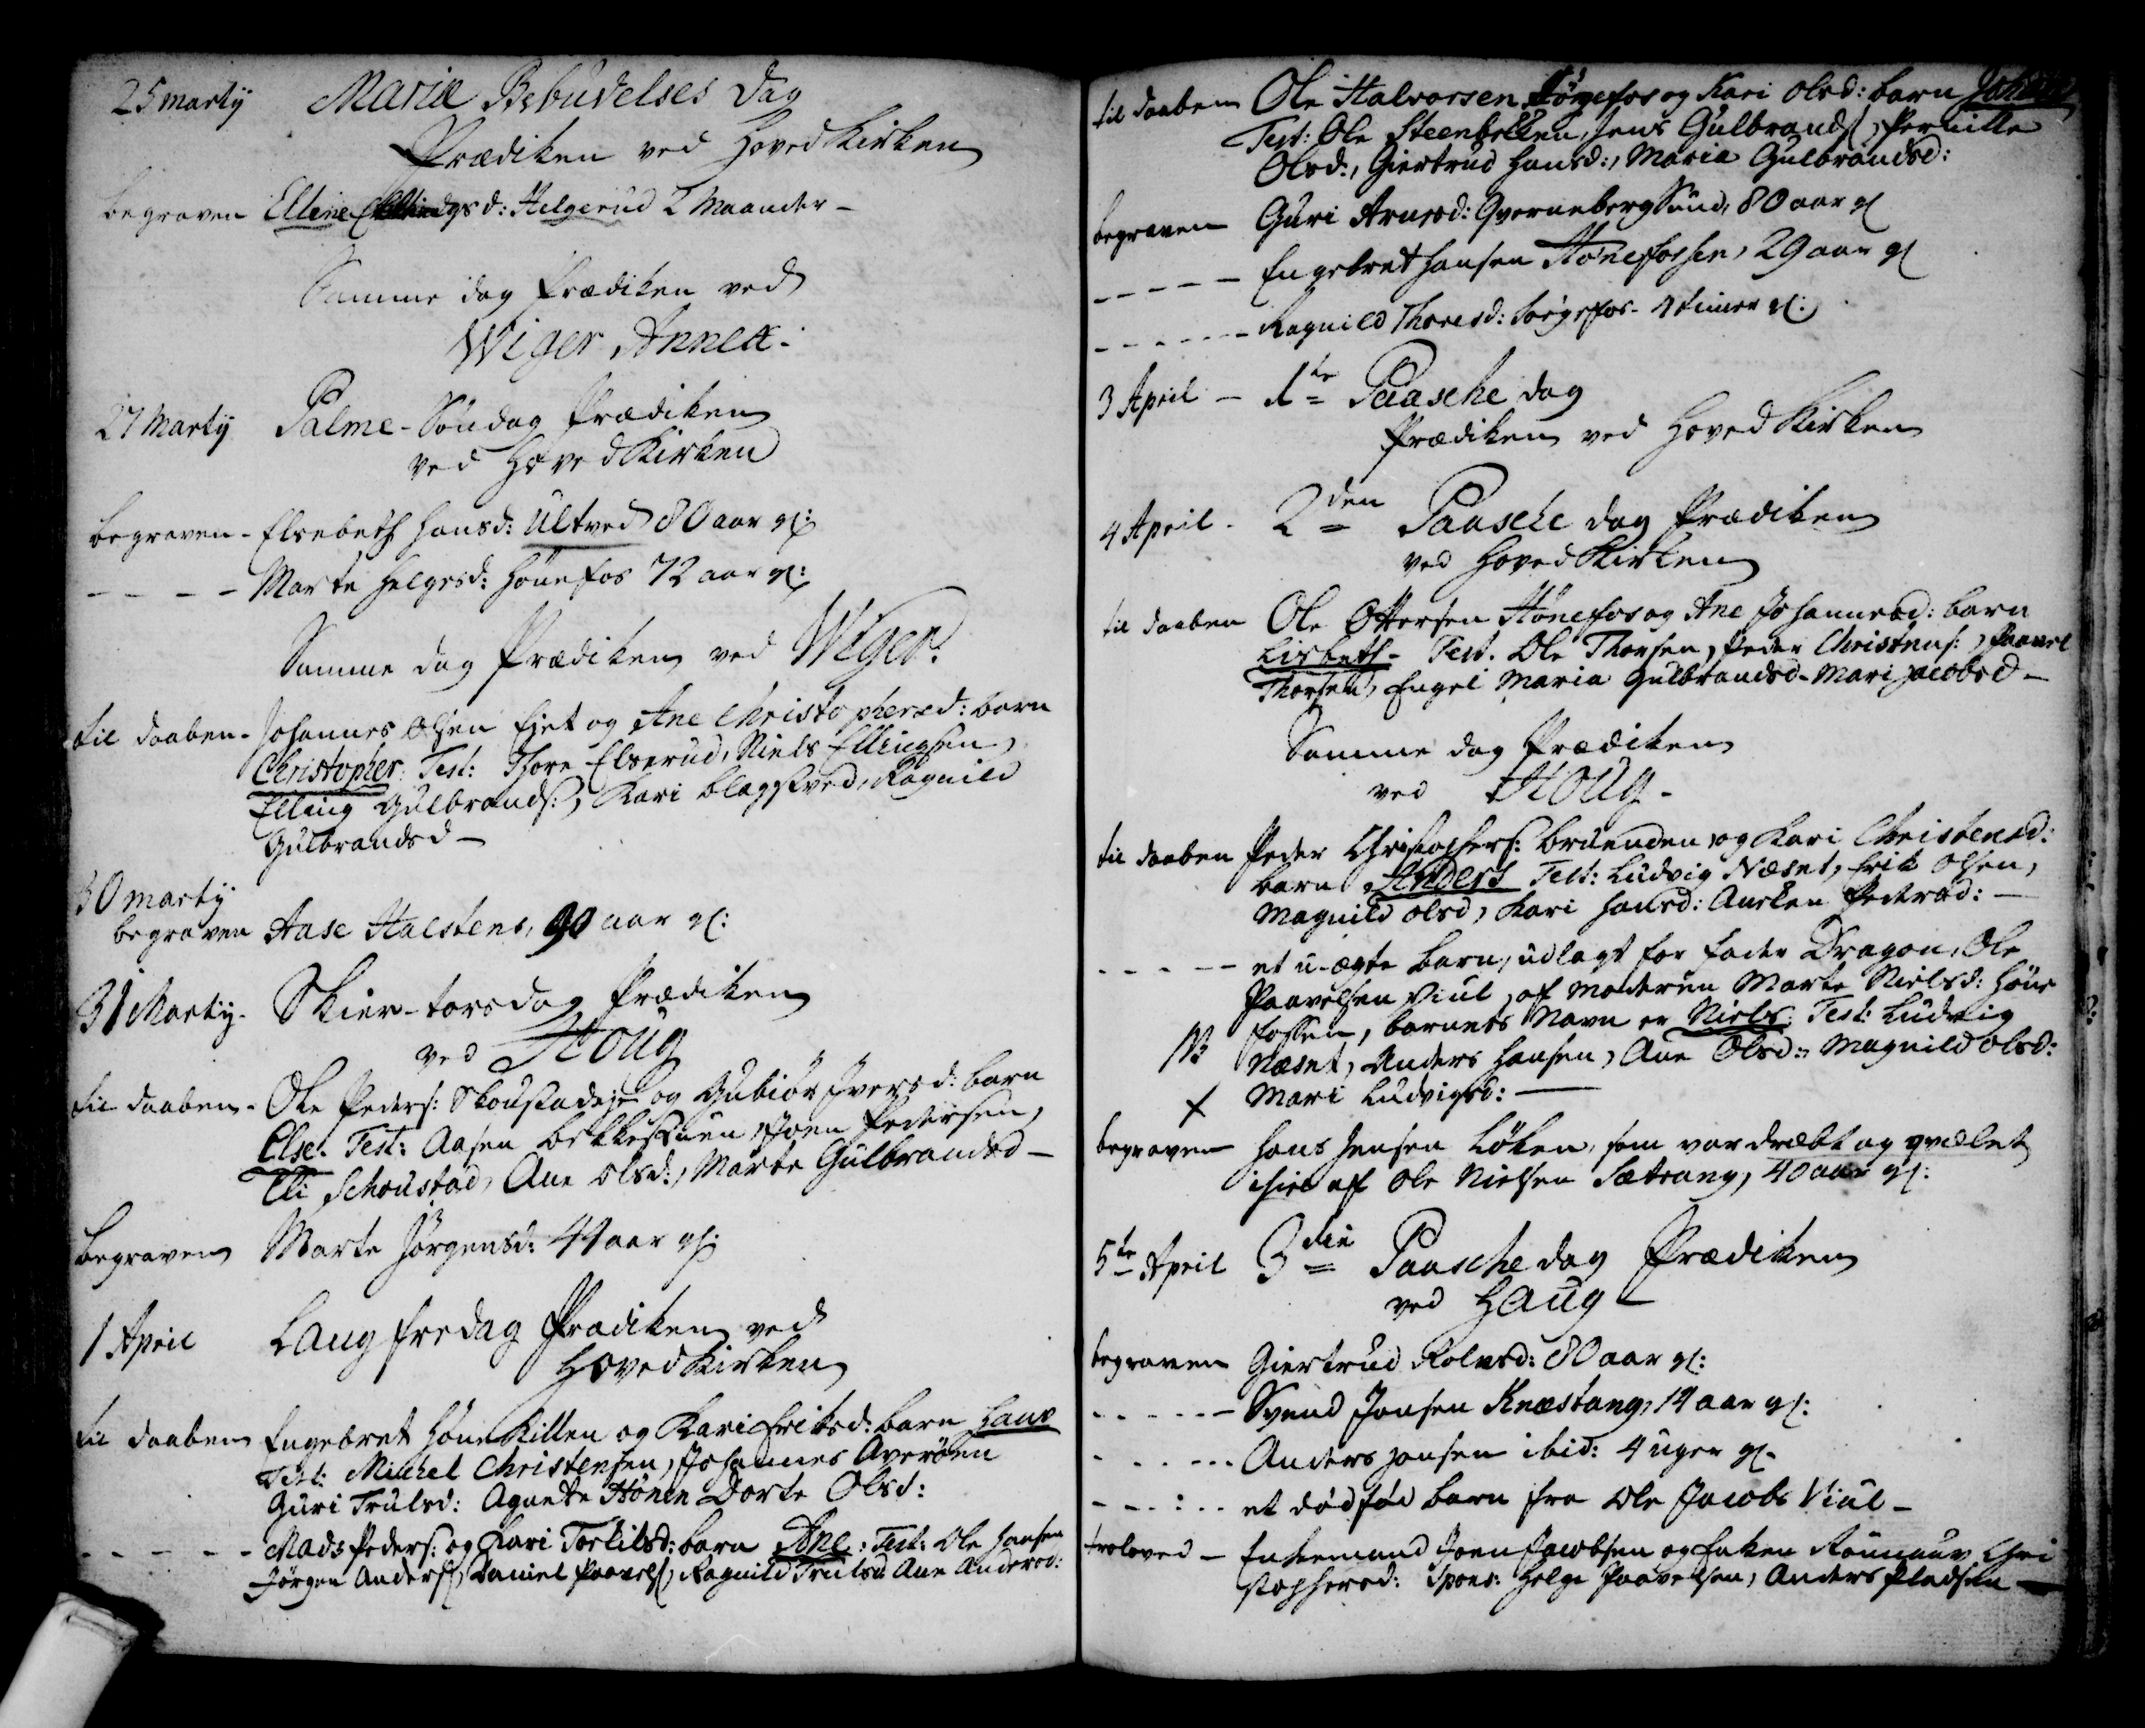 25 Martÿ Mariæ Bebudelses Dag
Prædiken ved Hoved Kirken
begraven Elline Ellingsd: Helgerud 2 Maander –
Samme dag Prædiken ved
Wiger Annex.
27 Martÿ Palme-Søndag Prædiken
ved Hoved Kirken
begraven - Elsebeth Hansd: Ultved 80 aar gl:
- - - - Marte Helgesd: Hønefos 72 aar gl:
Samme dag Prædiken ved Wiger.
til daaben - Johannes Olsen Ejet og Ane Christophersd: barn
Christopher. Test: Thore Elserud, Niels Ellingsen,
Elling Gulbrands:, Kari Blagstved, Ragnild
Gulbrandsd –
30 Martÿ
begraven Aase Halstens, 90 aar gl:
31 Martÿ - Skier-torsdag Prædiken
ved Houg
til daaben - Ole Peders: Skoustadeje og Gubiør Iversd: barn
Else. Test: Aasen Bekkestuen, Joen Pedersen,
Eli Schoustad, Ane Olsd:, Marte Gulbrandsd –
begraven Marte Jørgensd: 44 aar gl:
1 April Langfredag Prædiken ved
Hoved Kirken
til daaben Engebret Hønekillen og Kari Eriksd: barn Hans
Test: Michel Christensen, Johannes Averøen
Guri Trulsd: Agnete Hønen Dorte Olsd:
- - - - - Mads Peders: og Kari Torkilsd: barn Ane: Test: Ole Hansen
Jørgen Anders:, Daniel Paavels:, Ragnild Trulsd Ane Andersd:
til daaben Ole Halvorsen Sørgefos og Kari Olsd: barn
Test: Ole Steenbekken, Jens Gulbrands:, Pernille
Olsd:, Giertrud Hansd:, Maria Gulbrandsd:
begraven Guri Arnesd: Qvernebergsund, 80 aar gl
- - - - - Engebret Hansen Hønefossen, 29 aar gl
- - - - - Ragnild Thoresd: Sørgefos - 4 timer gl:
3 April - 1te Paasche dag
Prædiken ved Hoved Kirken
4 April - 2den Paasche dag Prædiken
ved Hoved Kirken
til daaben Ole Ottersen Hønefos og Ane Johannesd: barn
Lisbeth - Test. Ole Thorsen, Peder Christens:, Paavel
Thorsen, Engel Maria Gulbrandsd - Mari Jacobsd –
Samme dag Prædiken
ved Houg -
til daaben Peder Christophers: Bruenden og Kari Christensd:
barn Anders Test: Ludvig Næset, Erik Olsen,
Magnild Olsd, Kari Hansd: Anrken Pedersd: –
- - - - - et u-ægte barn, udlagt for fader Dragon, Ole
Paavelsen Viul, af moderen Marte Nielsd: Høne
NB fossen, barnets Navn er Niels. Test: Ludvig
Næset, Anders Hansen, Ane Olsd:, Magnild Olsd:
x Mari Ludvigsd: –
begraven Hans Jensen Løken, som var dræbt og qvælet
ihiel af Ole Nielsen Sætrang, 40 aar gl:
5te April 3die Paasche dag Prædiken
ved Haug
begraven Giertrud Rolvsd: 80 aar gl:
- - - - - Svend Jonsen Knæstang, 14 aar gl:
- - - - - Anders Jonsen ibid: 4 uger gl.
- - - - - et dødfød barn fra Ole Jacobs Viul –
troloved - Enkemand Joen Jacobsen og Enken Rønnauv Chri
stophersd: Spons: Helge Paavelsen, Anders Pladsen –